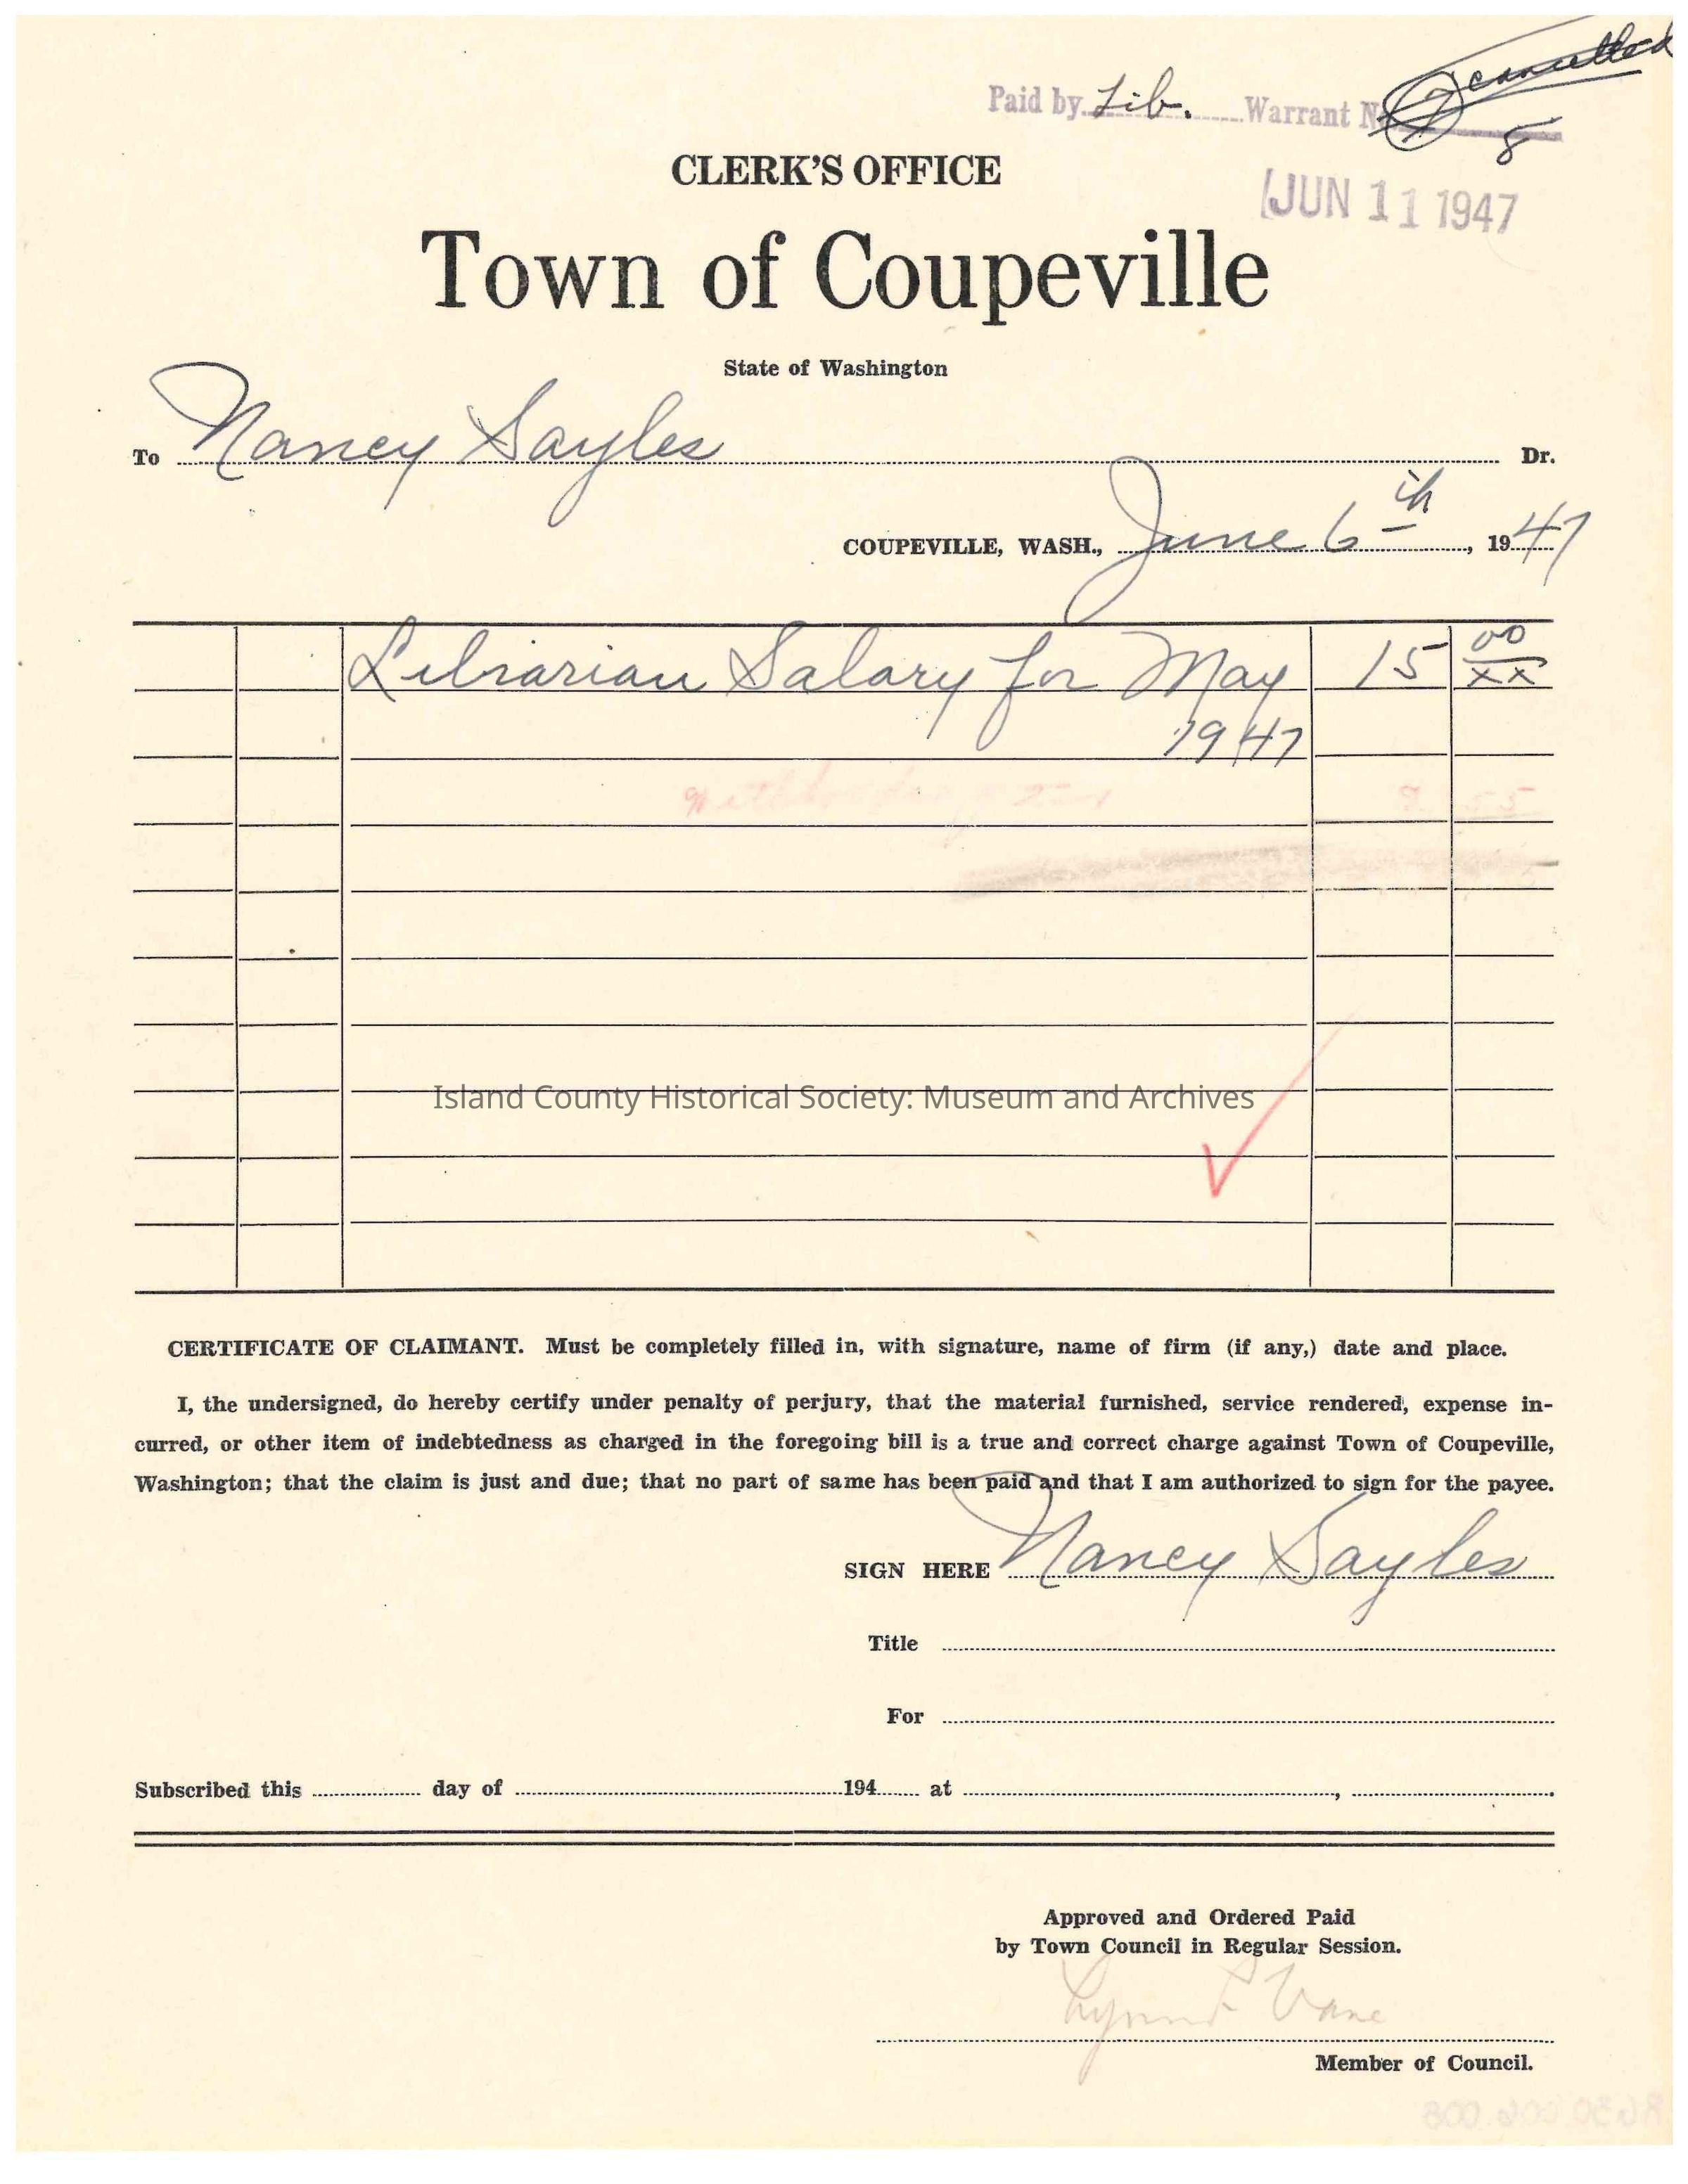 cancelled
Paid by Lib. Warrant No. 7
8
JUN 11 1947
CLERK'S OFFICE
Town of Coupeville
State of Washington
To Nancy Sayles Dr.
COUPEVILLE, WASH., June 6th, 1947
Librarian Salary for May 15 00/xx
1947
Island County Historical Society: Museum and Archives
CERTIFICATE OF CLAIMANT. Must be completely filled in, with signature, name of firm (if any,) date and place.
I, the undersigned, do hereby certify under penalty of perjury, that the material furnished, service rendered, expense in-
curred, or other item of indebtedness as charged in the foregoing bill is a true and correct charge against Town of Coupeville,
Washington; that the claim is just and due; that no part of same has been paid and that I am authorized to sign for the payee.
SIGN HERE Nancy Sayles
Title
For
Subscribed this day of 194 at ,
Approved and Ordered Paid
by Town Council in Regular Session.
Vane
Member of Council.